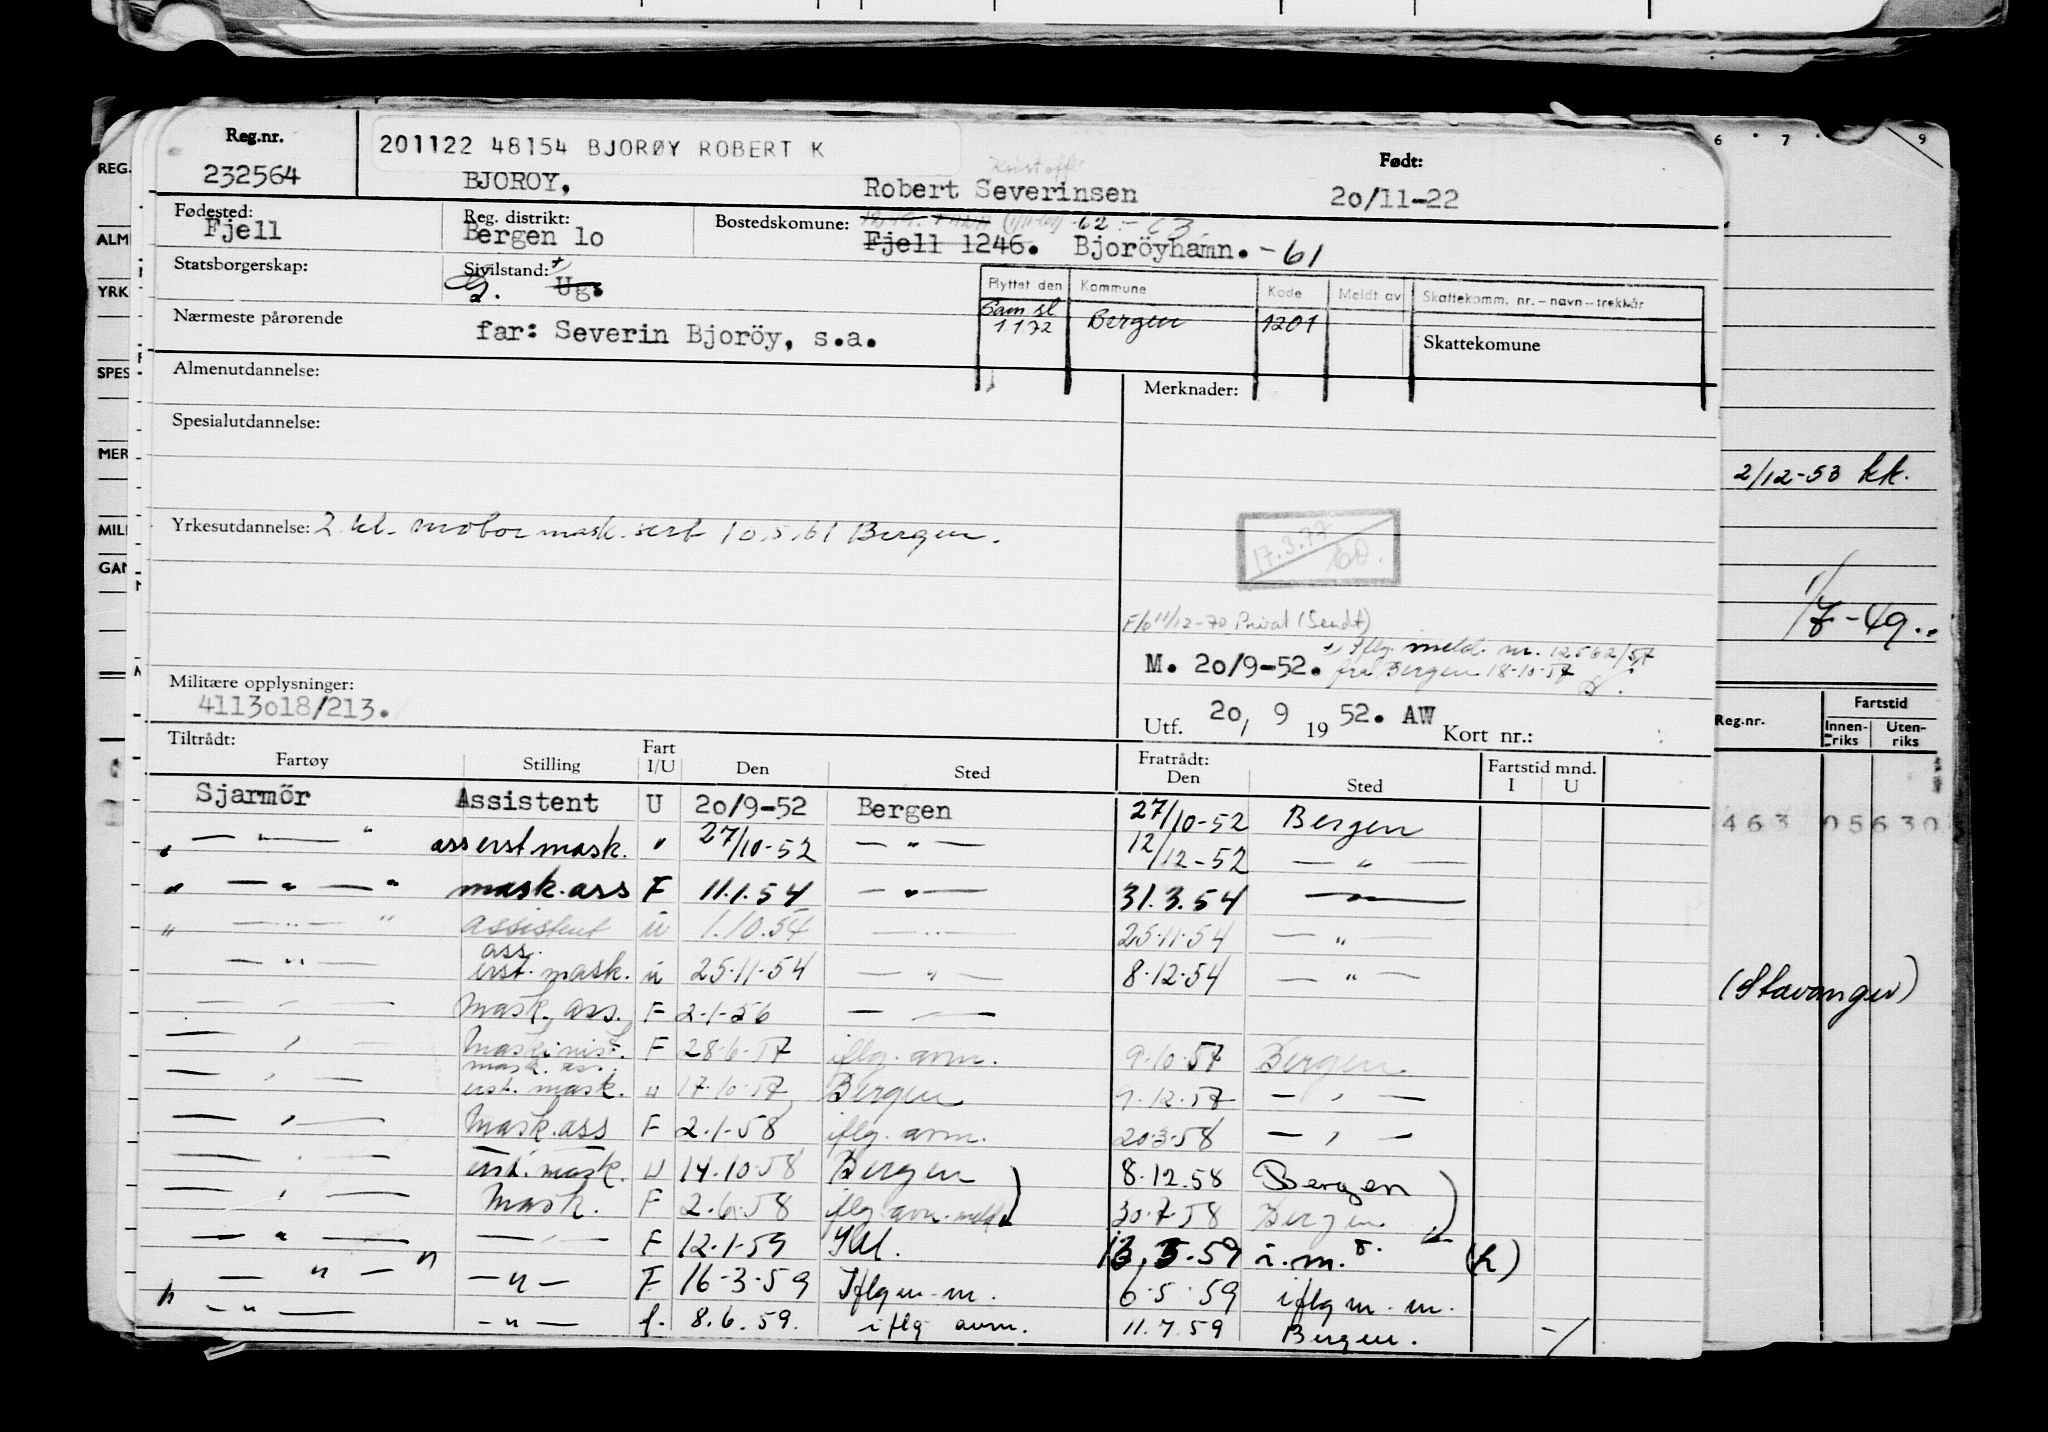 Reg.nr.
232564
201122 48154 BJORØY ROBERT K
BJOROY,
Kristoffer
Robert Severinsen
Født:
20/11-22
Fødested:
Fjell
Reg. distrikt:
Bergen 1o
Bostedskomune:
-62
Fjell 1246. Bjoröyhamn. -61
Statsborgerskap:
Sivilstand: +
G. Ug.
Flyttet den Kommune Kode Meldt av Skattekomm. nr. – navn – trekkår
Sam sl
1 1 72 Bergen 1201
Skattekomune
Nærmeste pårørende
far: Severin Bjoröy, s.a.
Almenutdannelse:
Merknader:
Spesialutdannelse:
Yrkesutdannelse: 2. kl. motormask. sert 10.5.61 Bergen.
17.3.77
60.
F/o 11/12-70 Privat (Sendt)
+) Iflg. meld. nr. 12562/57
M. 20/9-52. fra Bergen 18-10-57
Militære opplysninger:
4113o18/213.
Utf. 20, 9 19 52. AW Kort nr.:
Tiltrådt:
Fartøy Stilling Fart I/U Den Sted Fratrådt: Den Sted Fartstid mnd. I U
Sjarmör Assistent U 20/9-52 Bergen 27/10-52 Bergen
" — " — " ass erst mask. " 27/10-52 — " — 12/12-52 — " —
" — " — " mask. ass F 11.1.54 — " — 31.3.54 — " —
" — " — " assistent U 1.10.54 — " — 25.11.54 — " —
— " — ass. erst. mask. u 25.11.54 — " — 8.12.54 — " —
— " — Mask. ass. F 2-1-56 — " —
— " — Maskinist. F 28-6-57 iflg. avm. 9-10-57 Bergen
— " — mask. ass. erst. mask. u 17-10-57 Bergen 9-12-57 — " —
— " — Mask. ass F 2-1-58 iflg. avm. 20-3-58 — " —
— " — erst. mask. u 14-10-58 Bergen 8.12.58 Bergen
— " — Mask. F 2-6-58 iflg avm. meld 30-7-58 Bergen
— " — — " — F 12-1-59 13.3.59 i.m. (h)
— " — " — " — F 16-3-59 Iflg m. m. 6-5-59 iflg m. m.
" — " — — " — f. 8.6.59. iflg avm. 11.7.59 Bergen.
REG.
ALM
YRK
SPES
MER
MIL
GAN
6 7 9
2/12-53 kk.
1/7-49..
Reg.nr.
Fartstid
Innen-riks Uten-riks
463 05630
(Stavanger)